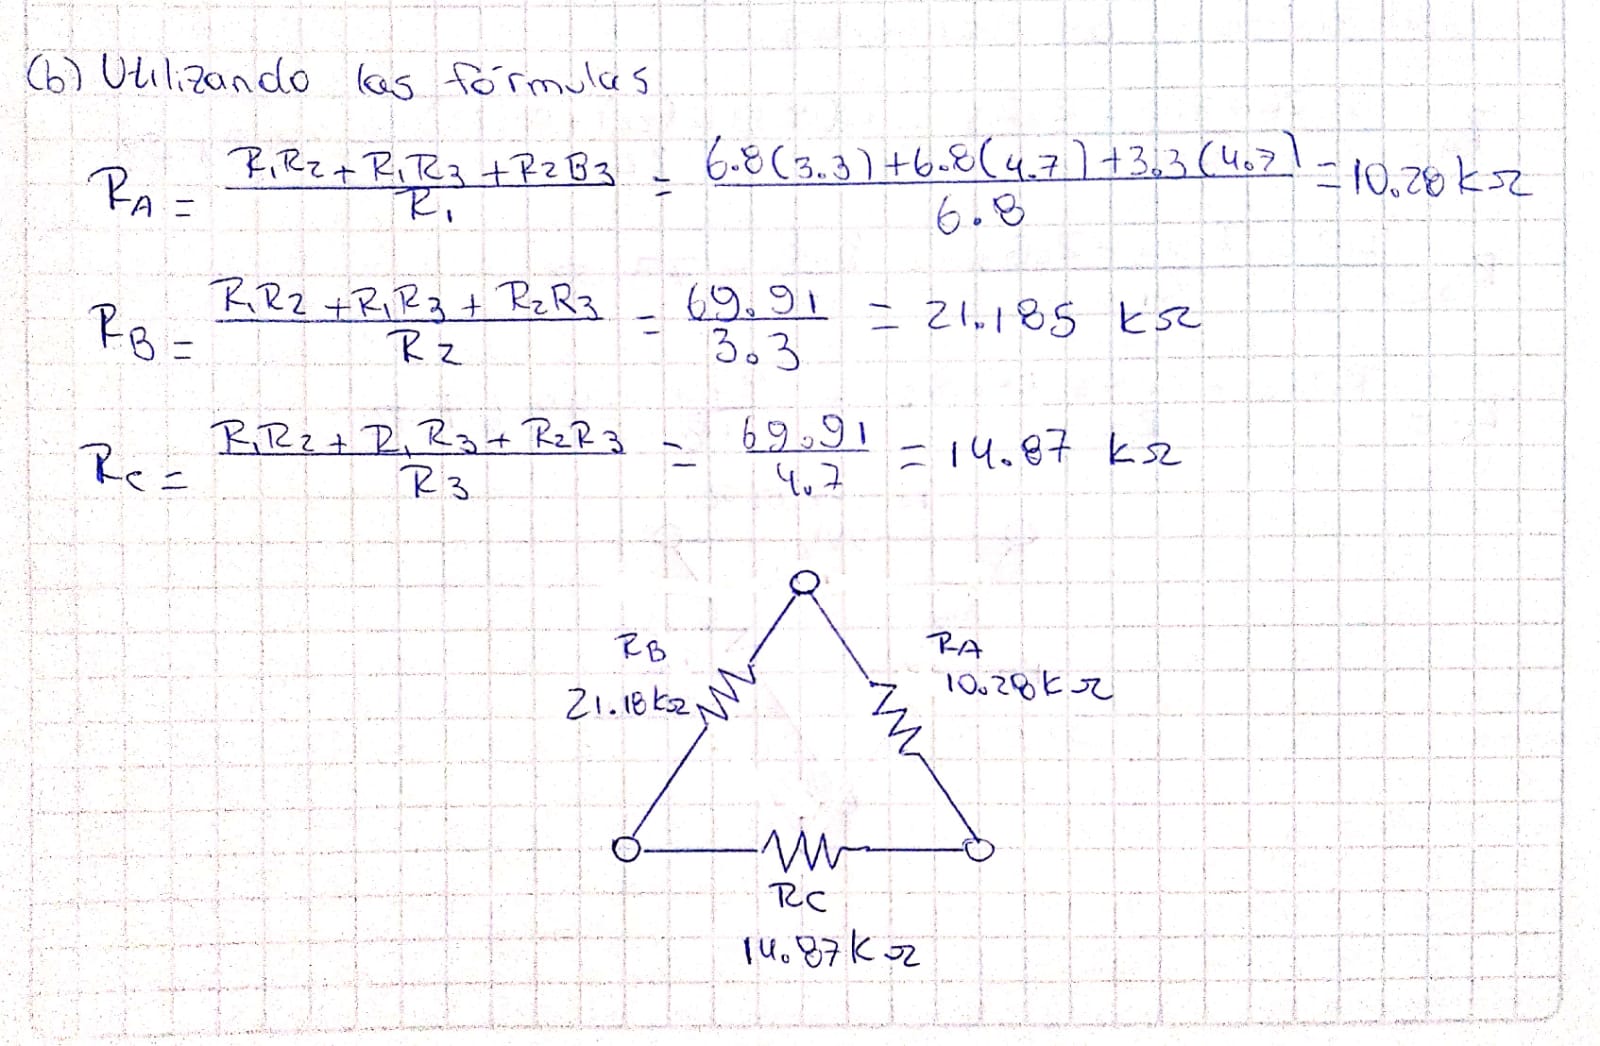 (b) Utilizando las fórmulas
RA = R1R2 + R1R3 + R2B3 / R1 = 6.8(3.3) + 6.8(4.7) + 3.3(4.7) / 6.8 = 10.28 kΩ
RB = R1R2 + R1R3 + R2R3 / R2 = 69.91 / 3.3 = 21.185 kΩ
RC = R1R2 + R1R3 + R2R3 / R3 = 69.91 / 4.7 = 14.87 kΩ
RB
21.18kΩ
RA
10.28kΩ
RC
14.87kΩ